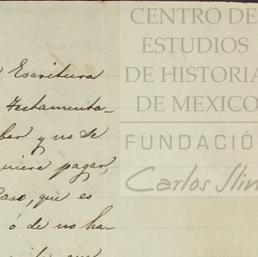 CENTRO DE
ESTUDIOS
DE HISTORIA
DE MEXICO
FUNDACIÓ
Carlos Slim
Escritura
Testamenta-
ber y no se
quiere pagar,
caso, que es
ó de no ha-